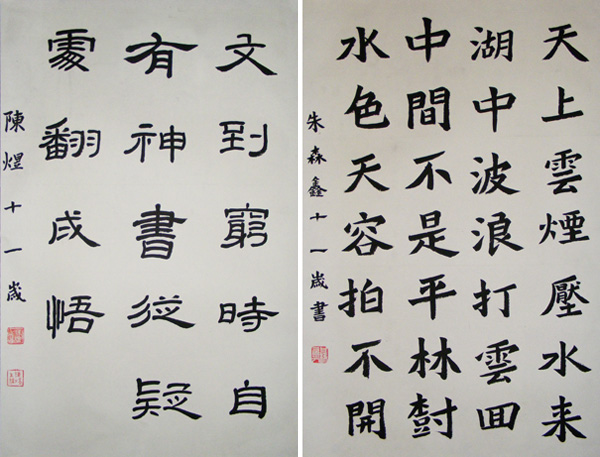 文到窮時自
有神書從疑
處翻成悟
陳煜十一歲
天上雲煙壓水来
湖中波浪打雲回
中間不是平林樹
水色天容拍不開
朱森鑫十一歲書